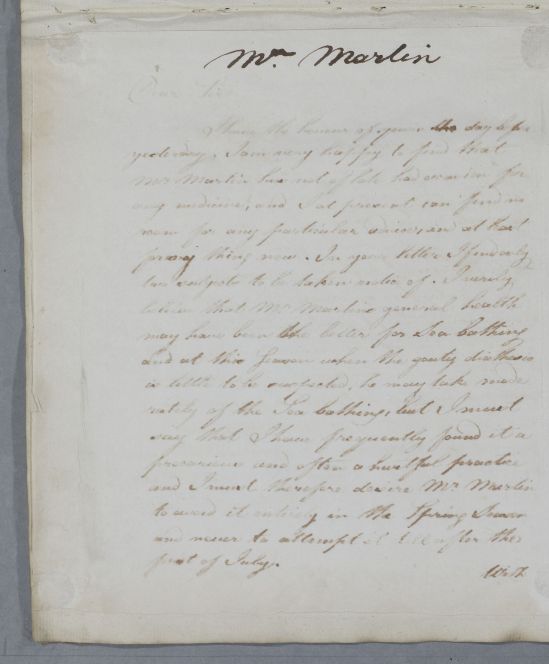 Mr. Martin
Dear Sir
I have the honour of yours the day before
yesterday, I am very happy to find that
Mr Martin has not of late had occasion for
any medicine, and I at present can find no
room for any particular advice, or at least
for any thing new. In your letter I find only
two subjects to be taken notice of. I verily
believe that Mr Martins general health
may have been the better for Sea bathing
and at this Season when the gouty diathesis
is little to be suspected, he may take mode
rately of the Sea bathing, but I must
say that I have frequently found it a
precarious and often a hurtful practice
and I must therefore desire Mr Martin
to avoid it entirely in the Spring Season
and never to attempt it till after the
first of July.
With